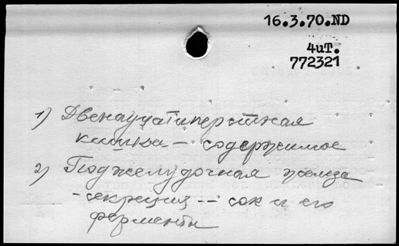 16.3.70.ND
4иТ.
772321
1) Двенадцатиперстная
кишка - содержимое
2) Поджелудочная железа
- секреция -- сок и его
ферменты